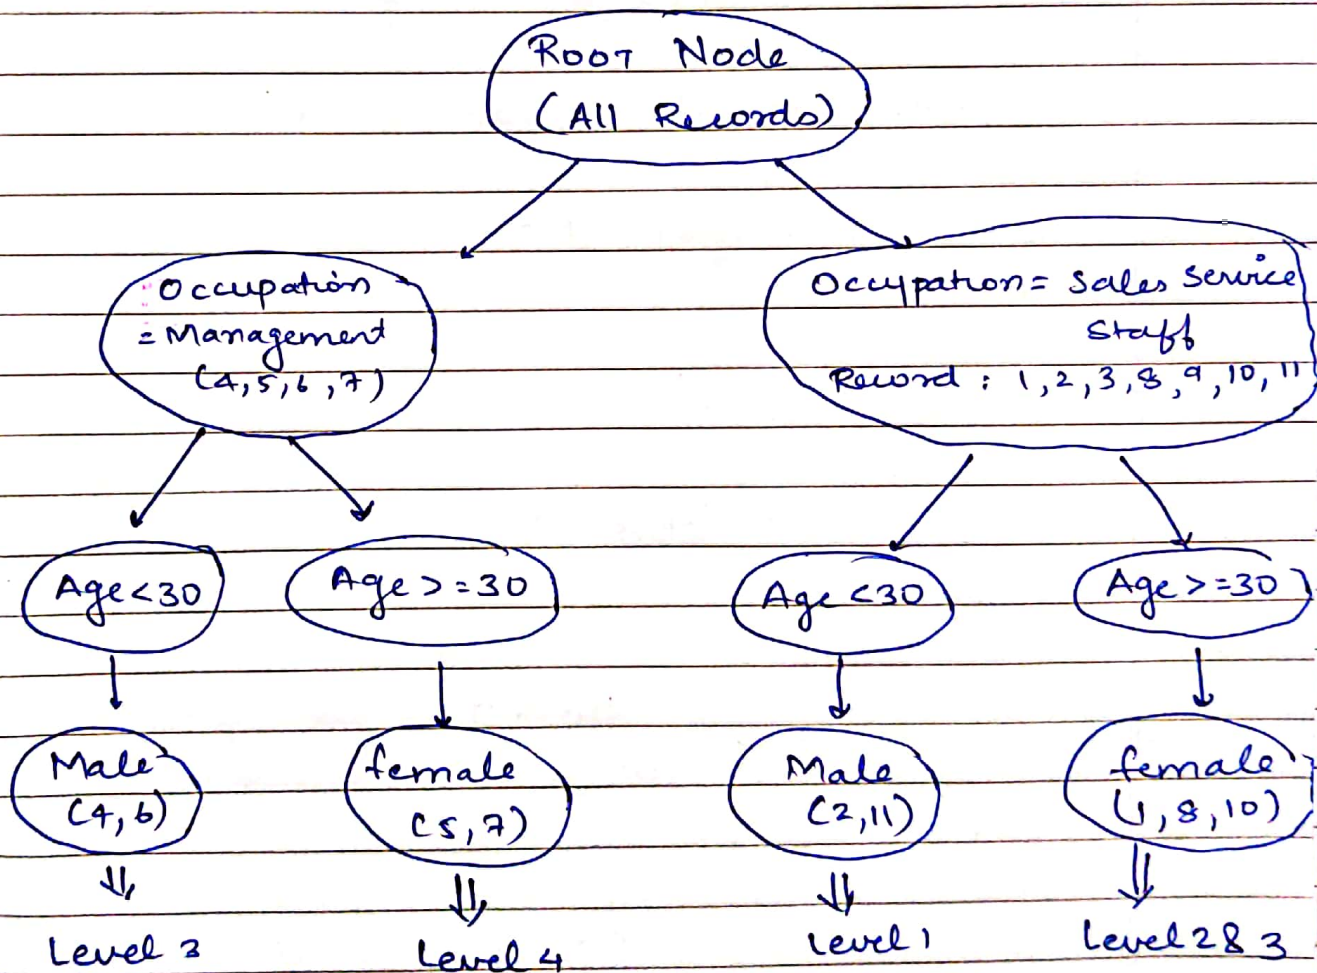 Root Node
(All Records)
Occupation
= Management
(4,5,6,7)
Occupation = Sales Service
Staff
Record : 1,2,3,8,9,10,11
Age<30
Age>=30
Age <30
Age >=30
Male
(4,6)
female
(5,7)
Male
(2,11)
female
(1,8,10)
Level 3
Level 4
Level 1
Level 2 & 3